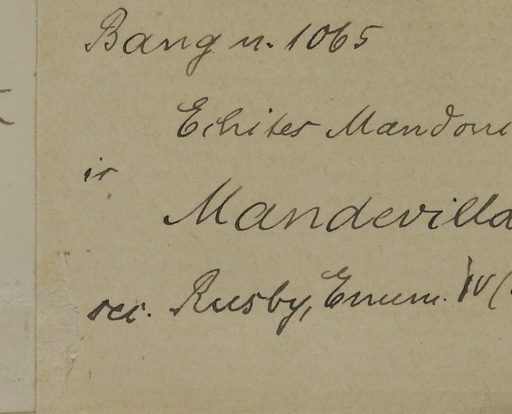 Bang n. 1065
Echites Mandoni
is
Mandevilla
sec. Rusby, Enum. IV (